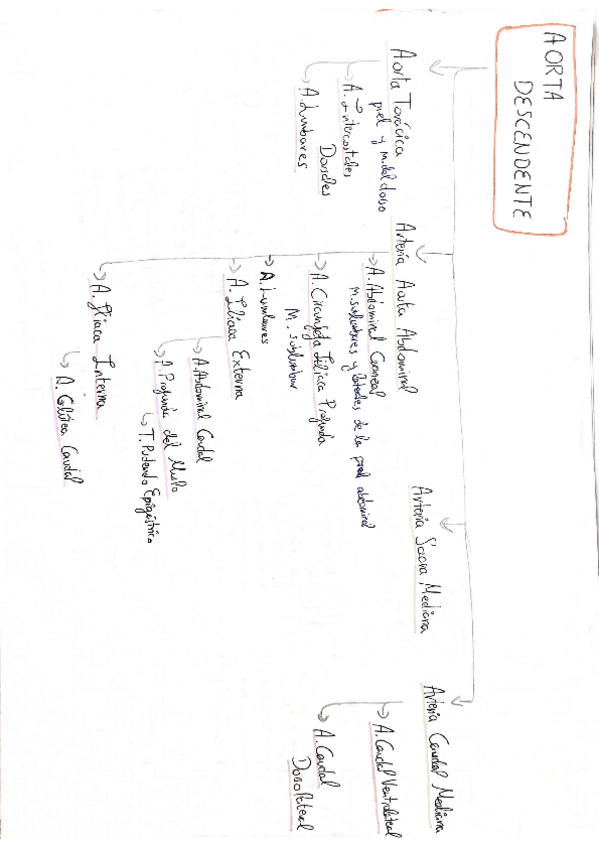 AORTA
DESCENDENTE
Aorta Torácica
piel y m. del dorso
A. Intercostales
Dorsales
A. Lumbares
Arteria Aorta Abdominal
A. Abdominal Craneal
M. sublumbares y laterales de la pared abdominal
A. Circunfleja Ilíaca Profunda
M. sublumbar
A. Lumbares
A. Ilíaca Externa
A. Abdominal Caudal
A. Profunda del Muslo
T. Pudendo Epigástrico
A. Ilíaca Interna
A. Glútea Caudal
Arteria Sacra Mediana
Arteria Caudal Mediana
A. Caudal Ventrolateral
A. Caudal
Dorsolateral